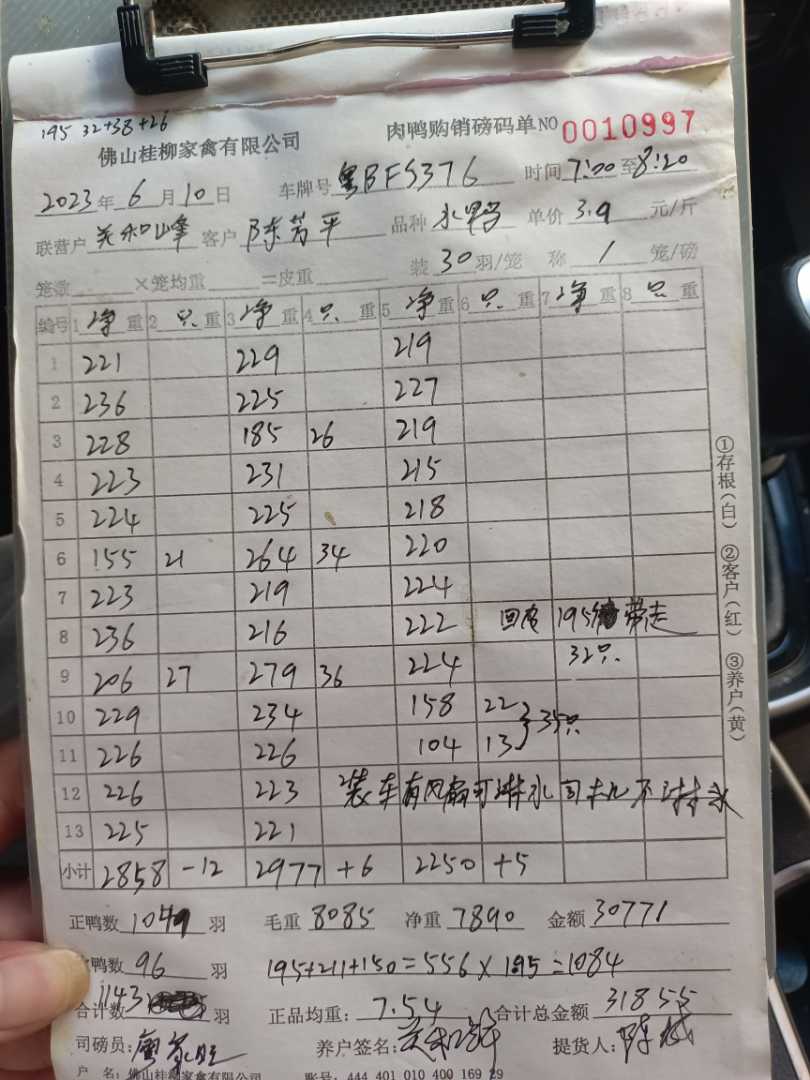 195 32+38+26
佛山桂柳家禽有限公司 肉鸭购销磅码单NO 0010997
2023年6月10日 车牌号 粤BFS376 时间7:00至8:20
联营户 关和峰 客户 陈芳平 品种 水鸭 单价 3.9 元/斤
笼数 ×笼均重 =皮重 装30羽/笼 称 1 笼/磅
编号 1净重 2只重 3净重 4只重 5净重 6只重 7净重 8只重
1 221 229 219
2 236 225 227
3 228 185 26 219
4 223 231 215
5 224 225 218
6 155 21 264 34 220
7 223 219 224
8 236 216 222 回皮 195 带走
9 206 27 279 36 224 32只.
10 229 234 158 22
11 226 226 104 13 }35只
12 226 223 装车有风扇可淋水司机不淋水
13 225 221
小计 2858 -12 2977 +6 2250 +5
正鸭数 1047 羽 毛重 8085 净重 7890 金额 30771
鸭数 96 羽 195+211+150=556×1.95=1084
合计数 1143 羽 正品均重: 7.54 合计总金额 31855
司磅员: 养户签名: 提货人:
户 名: 佛山桂柳家禽有限公司 账号: 444 401 010 400 169 29
①存根(白) ②客户(红) ③养户(黄)